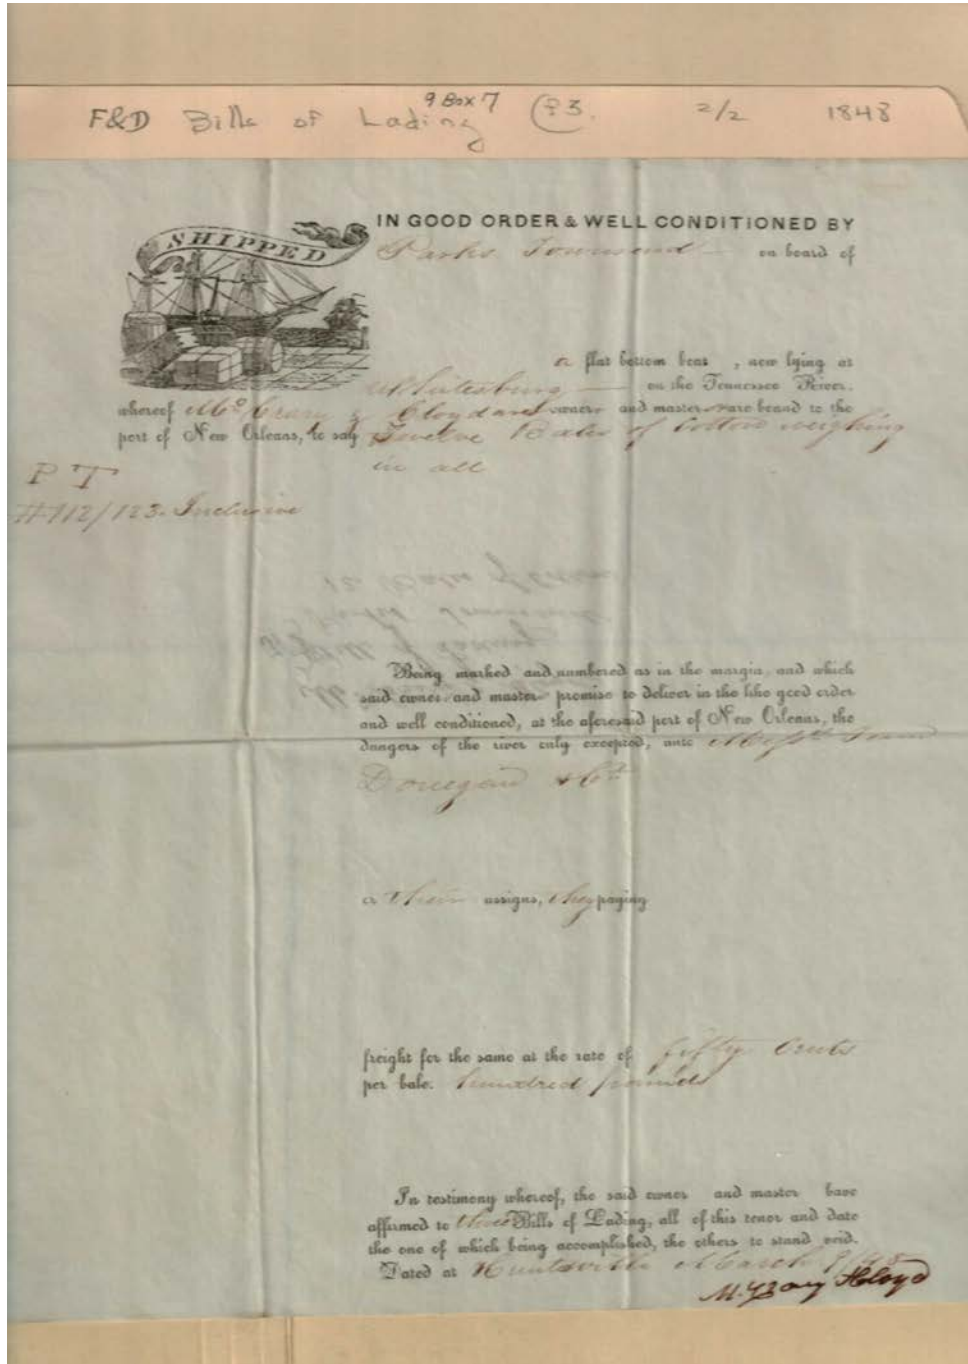 9 Box 7
F&D Bills of Lading 2/2 1848
SHIPPED
IN GOOD ORDER & WELL CONDITIONED BY
Parks Townsend on board of
a flat bottom boat, now lying at
Whitesburg on the Tennessee River.
whereof owner and master are bound to the
port of New Orleans, to say Twelve Bales of Cotton weighing
in all
P T
#112/123 Inclusive
Being marked and numbered as in the margin, and which
said owner and master promise to deliver in the like good order
and well conditioned, at the aforesaid port of New Orleans, the
dangers of the river only excepted, unto
Donegan & Co
or their assigns, they paying
freight for the same at the rate of fifty Cents
per bale. hundred pounds
In testimony whereof, the said owner and master have
affirmed to three Bills of Lading, all of this tenor and date
the one of which being accomplished, the others to stand void.
Dated at Huntsville March